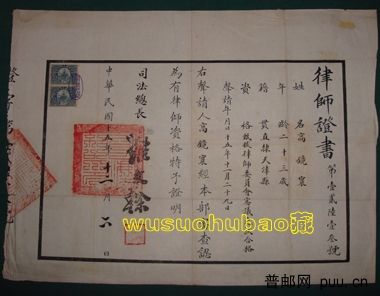 律師證書
第壹貳陸壹叁號
姓名高鏡寰
年齡二十三歲
籍貫直隸天津縣
資格
聲請年月日十五年十二月二十九日
右聲請人高鏡寰經本部審查認
為有律師資格特予證明
司法總長
中華民國十
年十二月六日
wusuohubao藏
普邮网 puu.cn